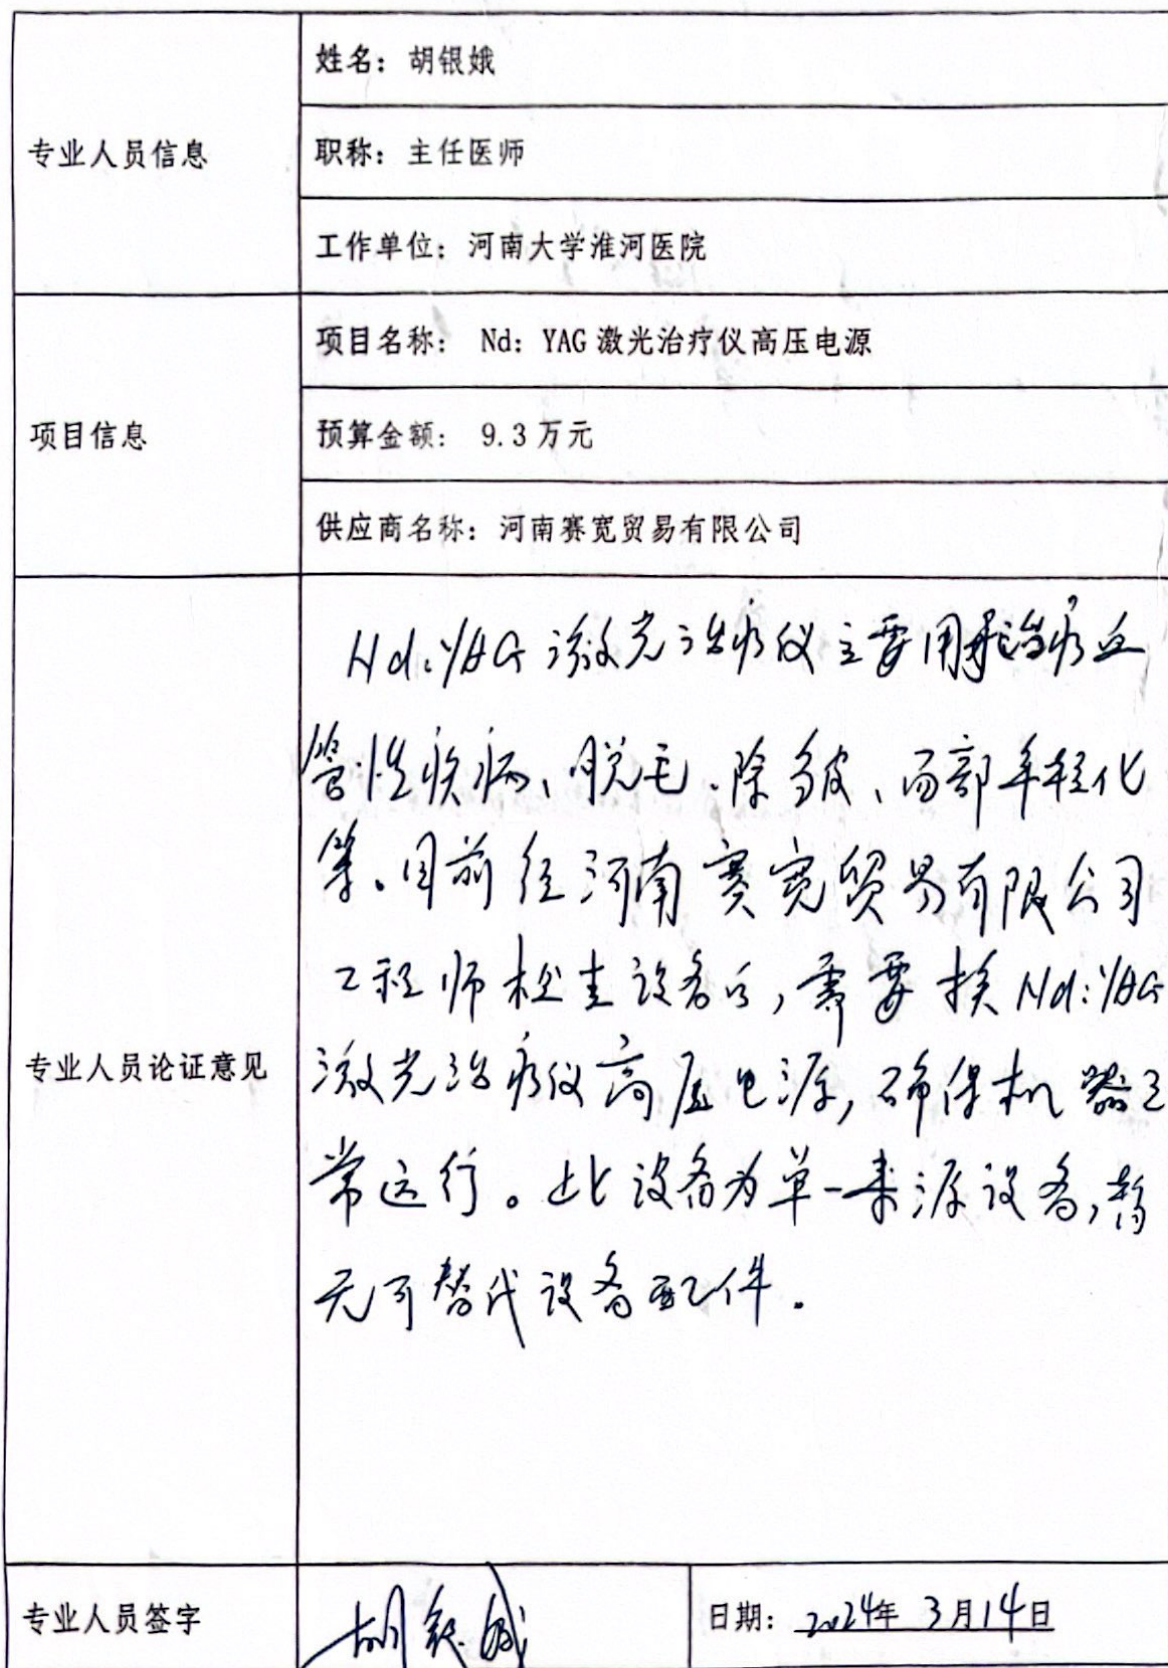 姓名：胡银娥
专业人员信息
职称：主任医师
工作单位：河南大学淮河医院
项目名称： Nd：YAG 激光治疗仪高压电源
项目信息
预算金额： 9.3 万元
供应商名称：河南赛宽贸易有限公司
Nd:YAG 激光治疗仪主要用于治疗血
管性疾病、脱毛、除皱、面部年轻化
等。目前经河南赛宽贸易有限公司
工程师检查设备后，需要换 Nd:YAG
专业人员论证意见
激光治疗仪高压电源，确保机器正
常运行。此设备为单一来源设备，暂
无可替代设备配件。
专业人员签字
胡银娥
日期：2024年 3月14日